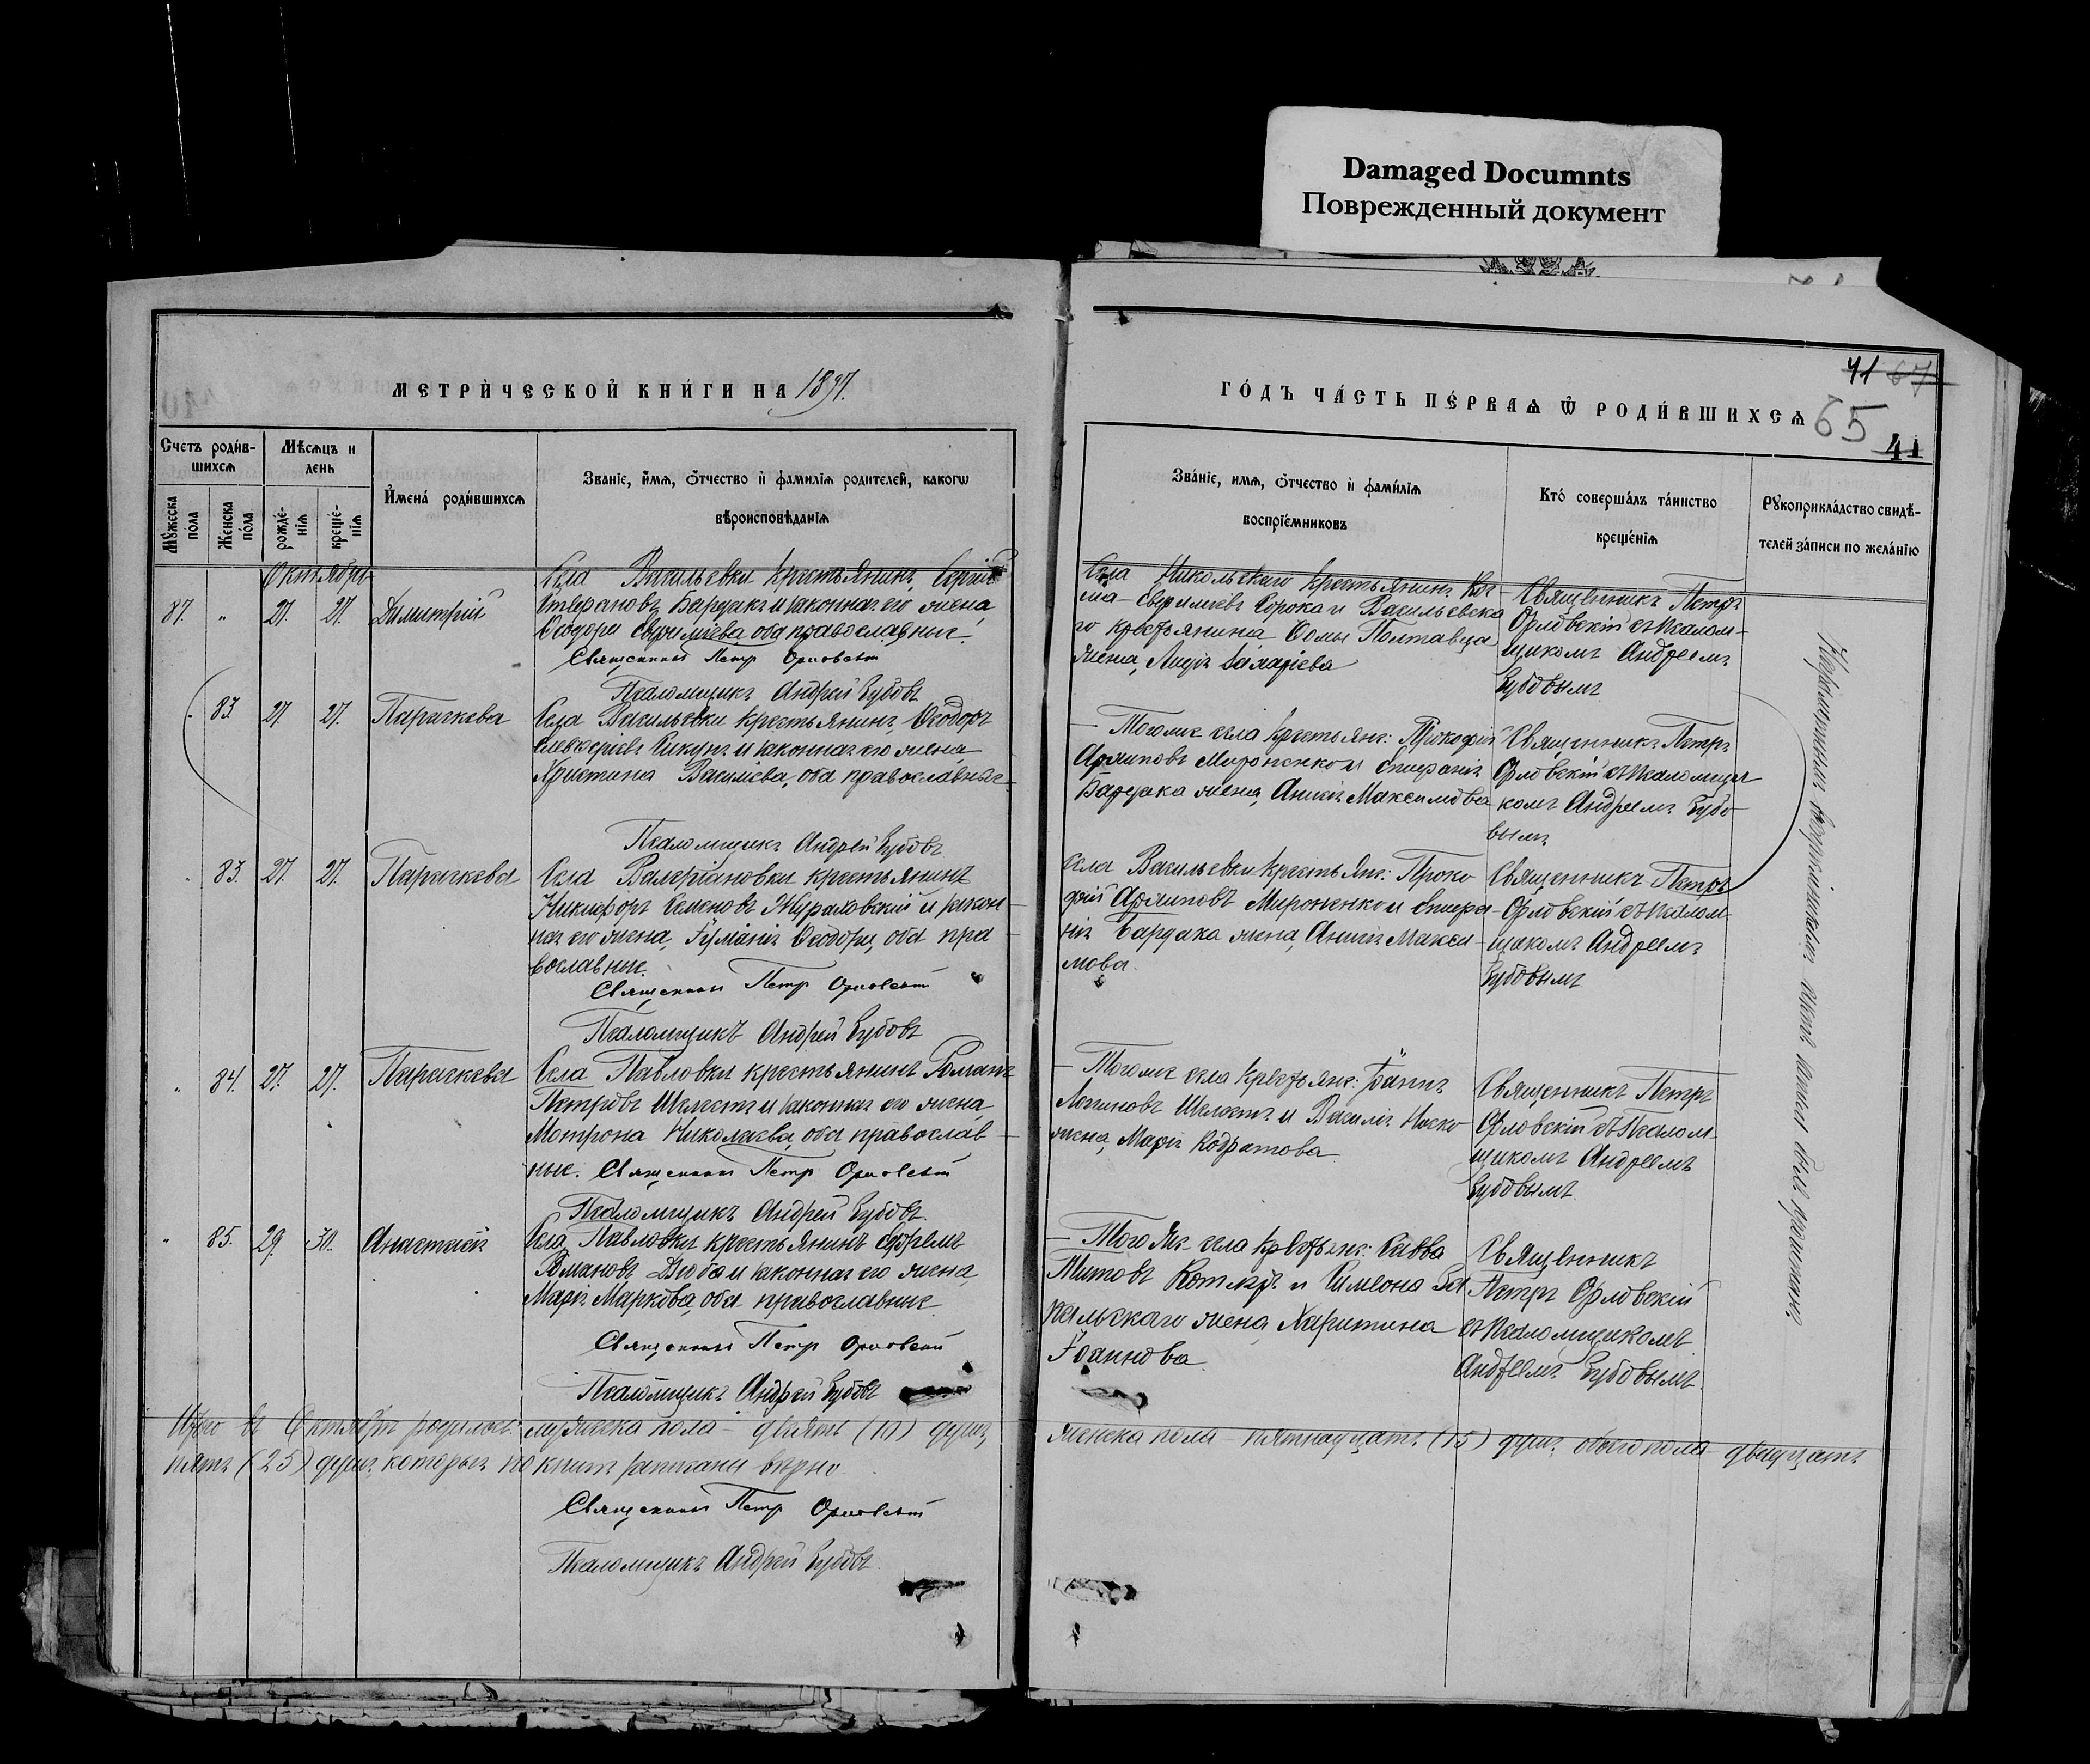 Damaged Documnts
Поврежденный документ
МЕТРИЧЕСКОЙ КНИГИ НА 1897.
ГОДЪ ЧАСТЬ ПЕРВАЯ Ѿ РОДИВШИХСЯ
41 67
65
41
Счетъ родив-
шихся
Мѣсяцъ и
день
Мужеска
пола
Женска
пола
рожде-
нія
креще-
нія
Имена родившихся
Званіе, имя, отчество и фамилія родителей, какогѡ
вѣроисповѣданія
Званіе, имя, отчество и фамилія
воспріемниковъ
Кто совершалъ таинство
крещенія
Рукоприкладство свидѣ-
телей записи по желанію
Октябрь
87. " 27. 27. Димитрій
Села Васильевки крестьянинъ Сергій
Стефановъ Бардакъ и законная его жена
Ѳеодора Евфиміева, оба православные.
Священникъ Петр Орловскій
Псаломщикъ Андрей Зубовъ
Села Никольскаго крестьянинъ Коз
ма Евфиміевъ Сорока и Васильевска
го крестьянина Ѳомы Полтавца
жена, Лидія
Священникъ Петръ
Орловскій съ псалом-
щикомъ Андреемъ
Зубовымъ
83. 27. 27. Параскева
Села Васильевки крестьянинъ Ѳеодоръ
и законная его жена
Христина Василіева, оба православные
Псаломщикъ Андрей Зубовъ
Тогоже села крестьян: Прокофій
Архиповъ Мироненко и
Бардака жена, Анна Максимова
Священникъ Петръ
Орловскій съ псаломщи
комъ Андреемъ Зубо-
вымъ
83. 27. 27. Параскева
Села Валеріановки крестьянинъ
Никифоръ Семеновъ Жураховскій и закон-
ная его жена, Ѳеодора, оба пра
вославные.
Священникъ Петр Орловскій
Псаломщикъ Андрей Зубовъ
Села Васильевки крестьян: Проко
фій Архиповъ Мироненко и
Бардака жена, Анна Макси
мова.
Священникъ Петръ
Орловскій съ псалом-
щикомъ Андреемъ
Зубовымъ
" 84. 27. 27. Параскева
Села Павловки крестьянинъ Романъ
Петровъ Шелестъ и законная его жена
Мотрона Николаева, оба православ
ные. Священникъ Петр Орловскій
Псаломщикъ Андрей Зубовъ.
Тогоже села крестьян: Іоаннъ
Логиновъ Шелестъ и Василія
жена, Марія Кодратова
Священникъ Петръ
Орловскій съ Псалом-
щикомъ Андреемъ
Зубовымъ.
" 85. 29. 30. Анастасія
Села Павловки крестьянинъ Ефремъ
Романовъ и законная его жена
Марія Маркова, оба православные
Священникъ Петр Орловскій
Псаломщикъ Андрей Зубовъ
Того же села крестьян: Савва
Титовъ Котляръ и Симеона За
жена Харитина
Іоаннова.
Священникъ
Петръ Орловскій
съ псаломщикомъ
Андреемъ Зубовымъ.
Итого въ Октябрѣ родилось: мужеска пола – десять (10) душъ, женска пола – пятнадцать (15) душъ, обоего пола двадцать
пять (25) душъ, которые по книгѣ записаны вѣрно.
Священникъ Петр Орловскій
Псаломщикъ Андрей Зубовъ.